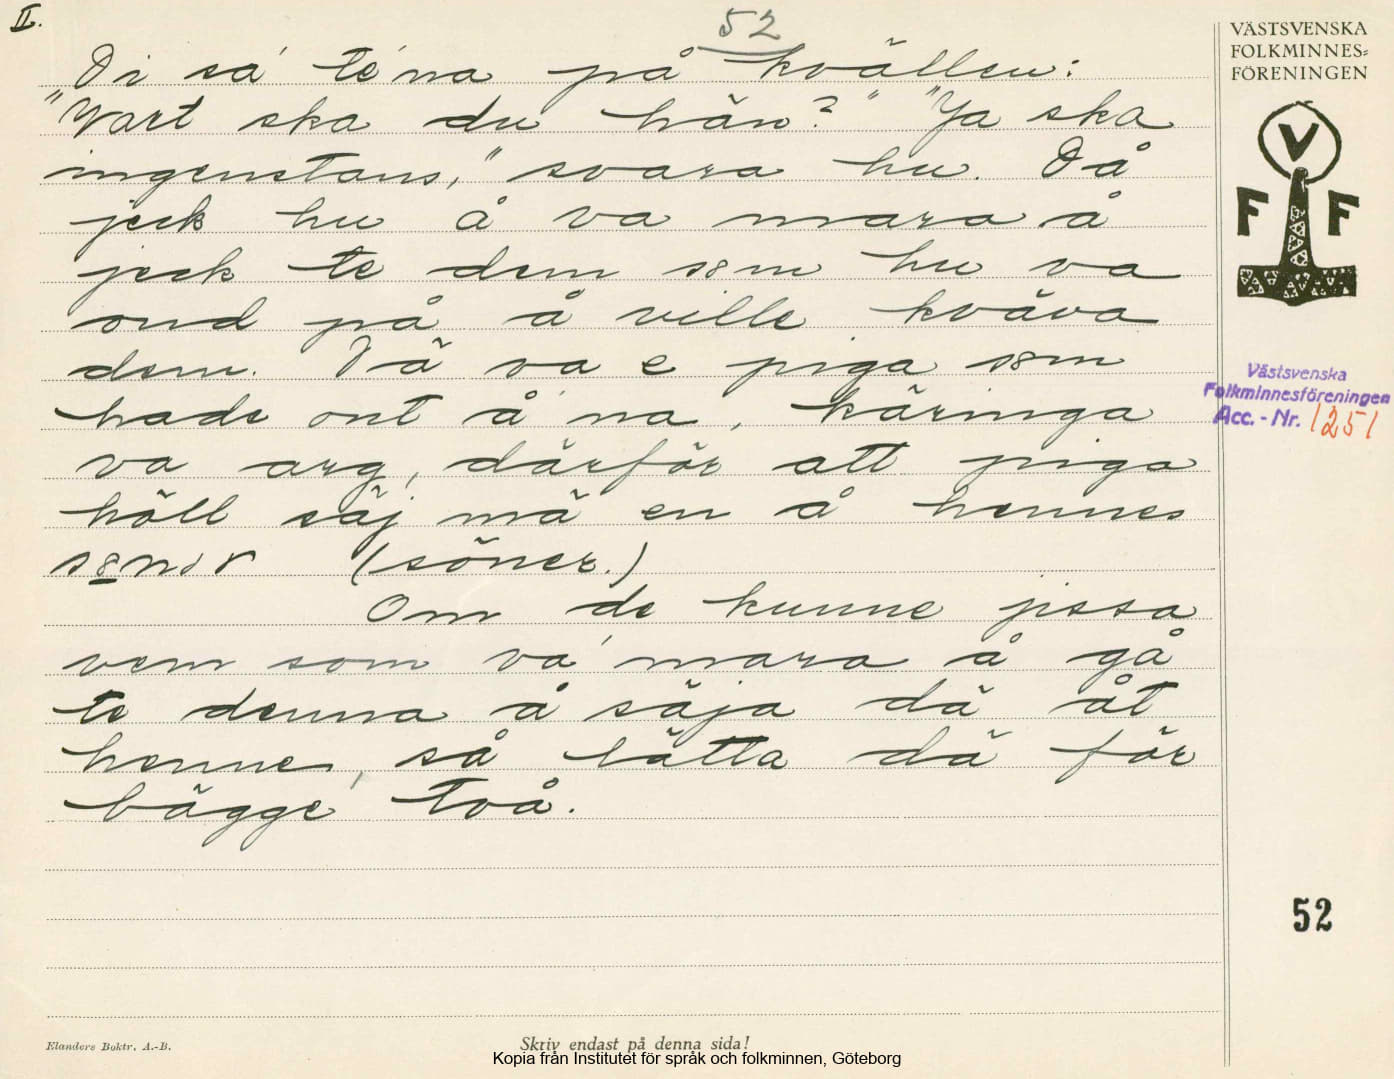 II.
52
Di sa' te'na på kvällen:
"Vart ska du hän?" "Ja ska
ingenstans," svara hu. Då
jeck hu å va mara å
jeck te dem s8m hu va
ond på å ville kväva
dem. Dä va e piga s8m
hade ont å'na, käringa
va arg, därför att piga
höll säj mä en å hennes
s8nər (söner.)
Om de kunne jissa
vem som va' mara å gå
te denna å säja dä åt
henne, så lätta dä för
bägge två.
VÄSTSVENSKA
FOLKMINNES=
FÖRENINGEN
V
F F
Västsvenska
Folkminnesföreningen
Acc. - Nr. 1251
52
Elanders Boktr. A.-B.
Skriv endast på denna sida!
Kopia från Institutet för språk och folkminnen, Göteborg